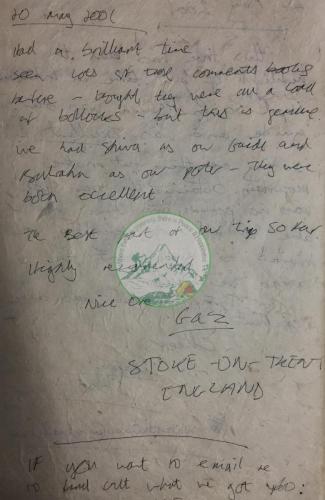 20 May 2001
Had a brilliant time
seen lots of these comments books
before - thought they were all a load
of bollocks - but this is genuine.
We had Shiva as our Guide and
as our porter - They were
both excellent.
The Best part of our trip so far
Highly recommended
Nice One
Gaz
STOKE-ON-TRENT
ENGLAND
IF you want to email me
to find out what we got upto: